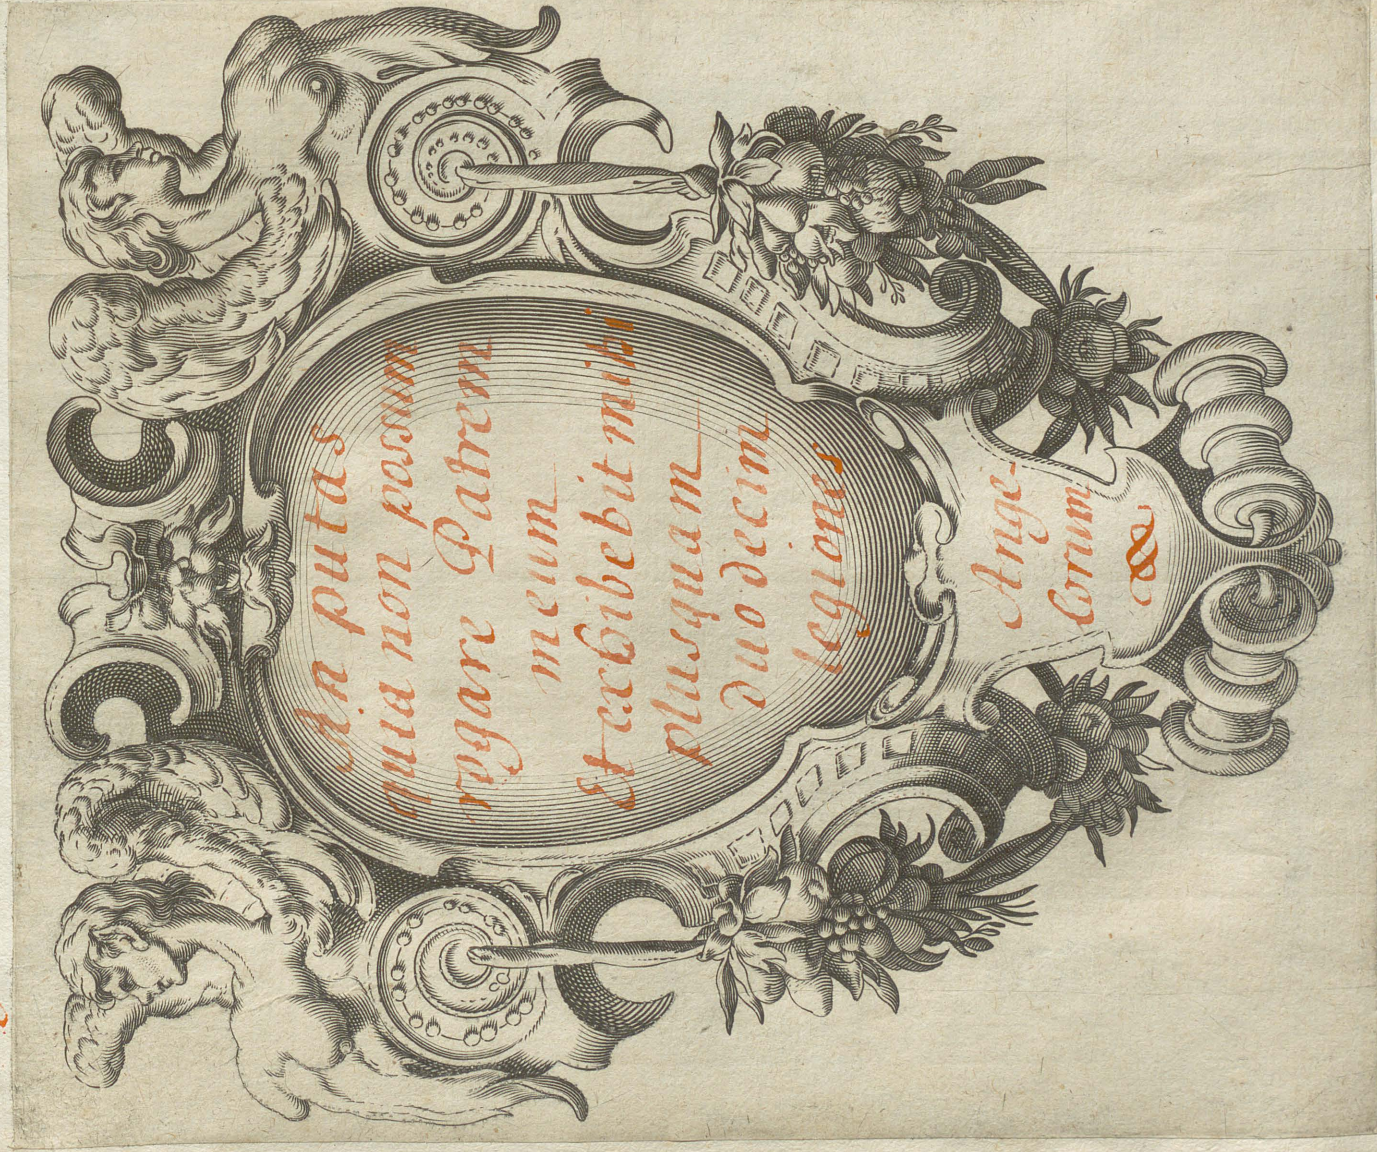 An putas
quia non possum
rogare Patrem
meum
Et exhibebit mihi
plusquam
duodecim
legiones
Ange-
lorum